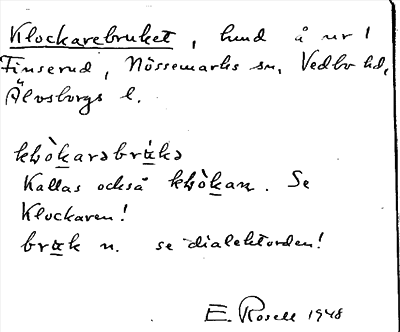 Klockarebruket, hmd å nr 1
Finserud, Nössemarks sn, Vedbo hd,
Älvsborgs l.
klòkarəbrukə
Kallas också klòkan. Se
Klockaren!
bruk n. se dialektorden!
E. Rosell 1948